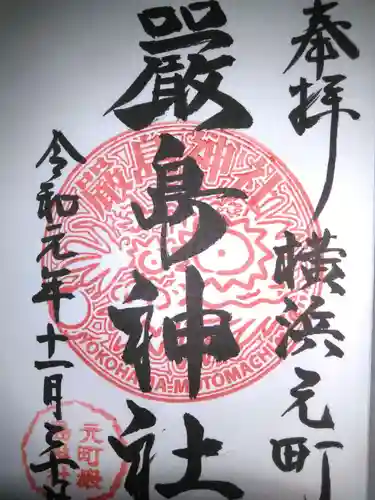 奉拝
横浜元町
嚴島神社
令和元年十一月三十日
嚴島神社
YOKOHAMA-MOTOMACHI
元町嚴島神社